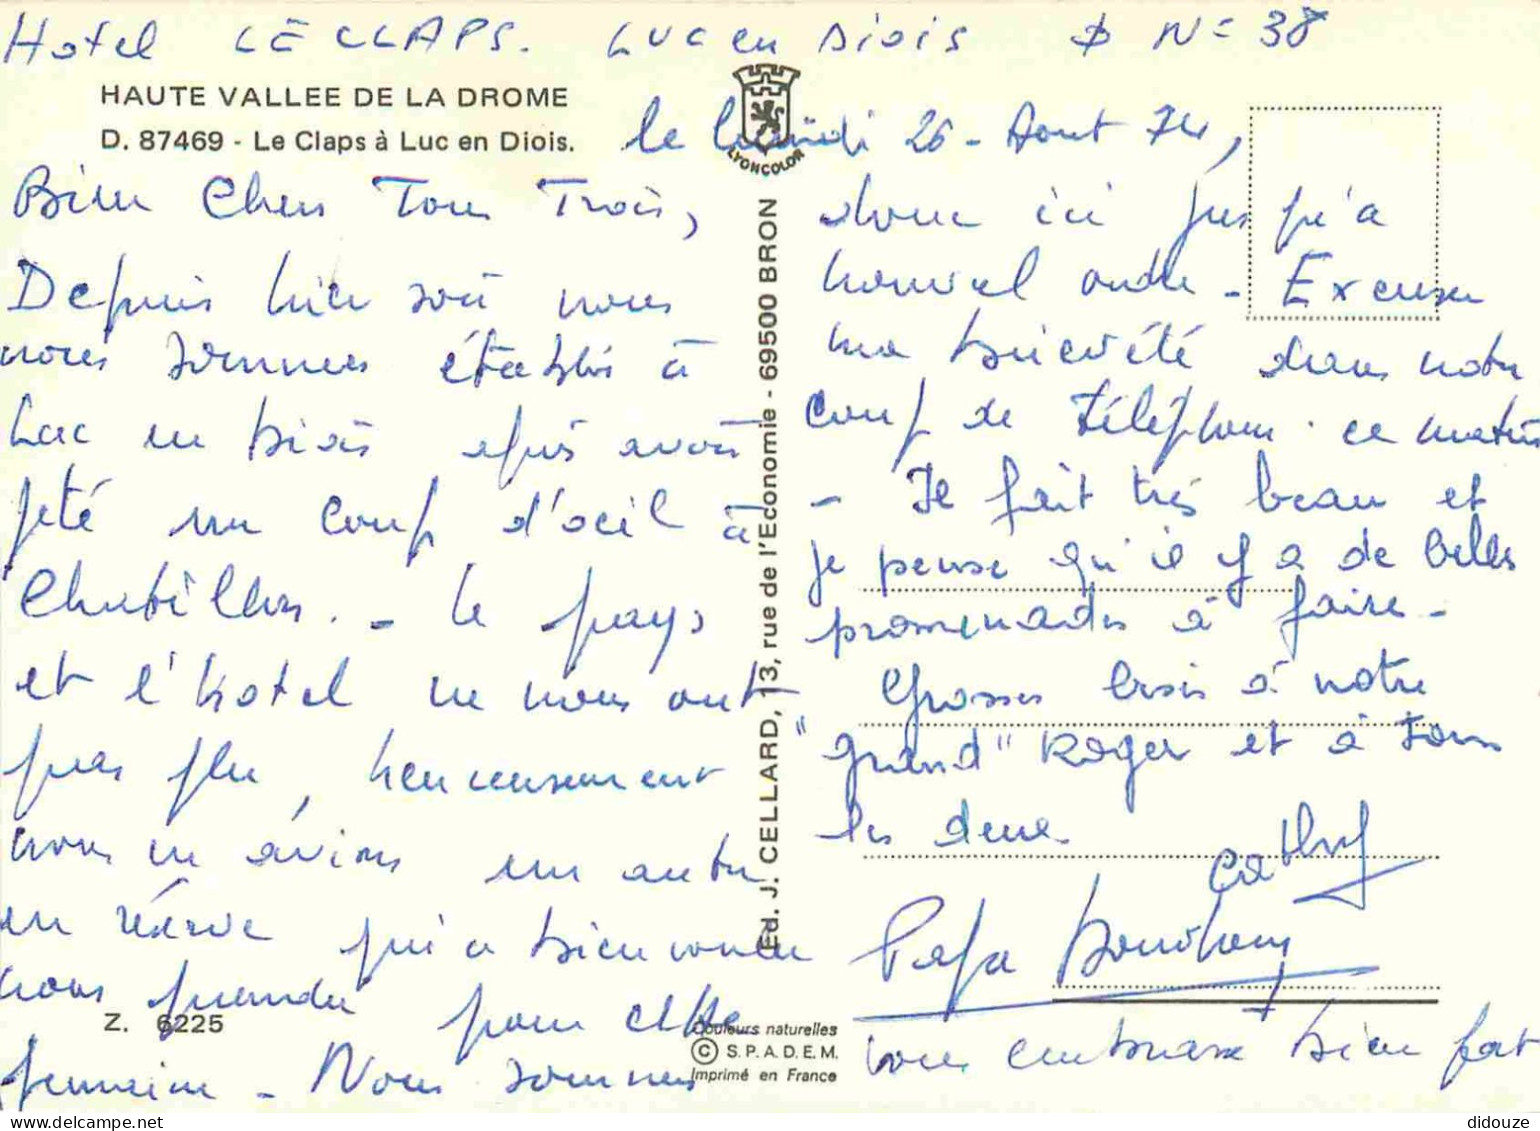 Hotel LE CLAPS. LUC en Diois N= 38
HAUTE VALLEE DE LA DROME
D. 87469 - Le Claps à Luc en Diois.
le lundi 26 - Aout 74,
Bien Chers Tous Trois,
Depuis hier soir nous
nous sommes établis à
Luc en Diois après avoir
jeté un coup d'oeil à
Chatillon. - Le pays
et l'hotel ne nous ont
pas plu, heureusement
nous en avions un autre
en réserve qui a bien voulu
nous prendre pour cette
semaine - Nous sommes
Z. 6225
LYONCOLOR
Ed. J. CELLARD, 13, rue de l'Economie - 69500 BRON
Couleurs naturelles
© S.P.A.D.E.M.
Imprimé en France
donc ici jusqu'à
nouvel ordre - Excusez
ma brièveté dans notre
coup de téléphone ce matin
- Il fait très beau et
je pense qu'il y a de belles
promenades à faire -
Grosses bises à notre
"grand" Roger et à tous
les deux
Cathy
Papa
vous embrasse bien fort
didouze